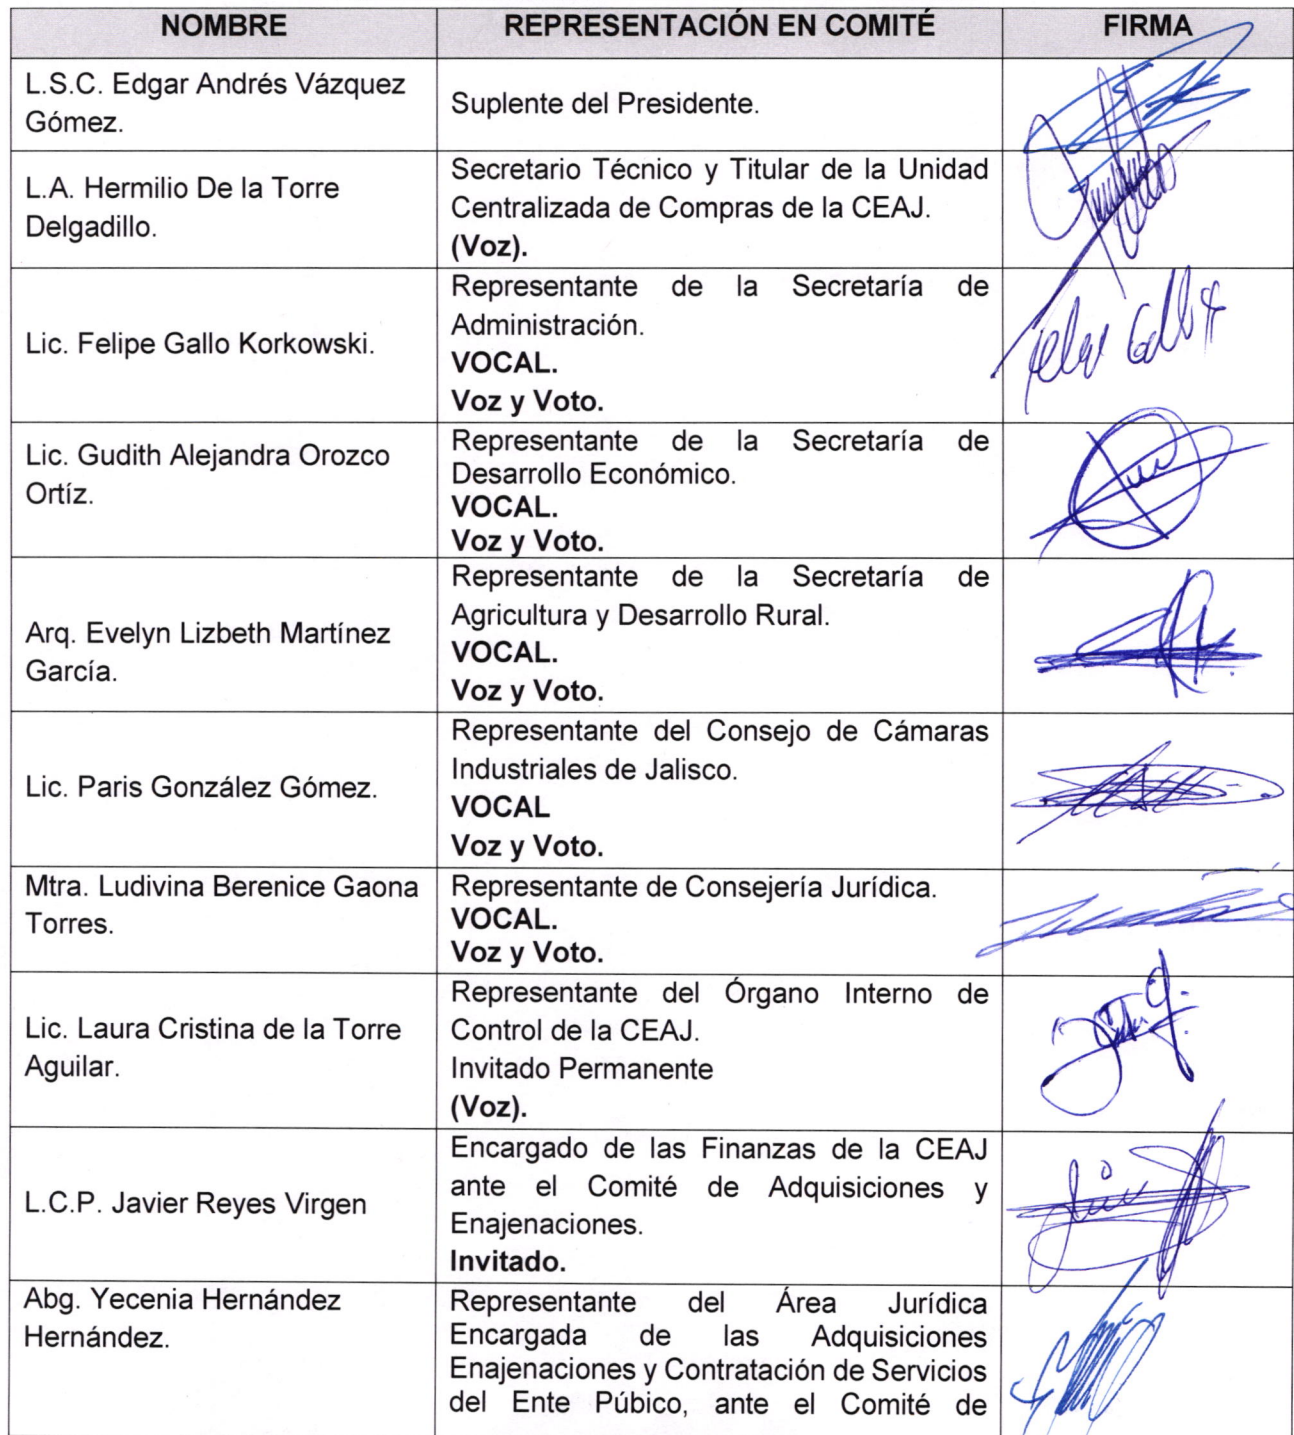 NOMBRE REPRESENTACIÓN EN COMITÉ FIRMA
L.S.C. Edgar Andrés Vázquez
Gómez.
Suplente del Presidente.
L.A. Hermilio De la Torre
Delgadillo.
Secretario Técnico y Titular de la Unidad
Centralizada de Compras de la CEAJ.
(Voz).
Lic. Felipe Gallo Korkowski.
Representante de la Secretaría de
Administración.
VOCAL.
Voz y Voto.
Lic. Gudith Alejandra Orozco
Ortíz.
Representante de la Secretaría de
Desarrollo Económico.
VOCAL.
Voz y Voto.
Arq. Evelyn Lizbeth Martínez
García.
Representante de la Secretaría de
Agricultura y Desarrollo Rural.
VOCAL.
Voz y Voto.
Lic. Paris González Gómez.
Representante del Consejo de Cámaras
Industriales de Jalisco.
VOCAL
Voz y Voto.
Mtra. Ludivina Berenice Gaona
Torres.
Representante de Consejería Jurídica.
VOCAL.
Voz y Voto.
Lic. Laura Cristina de la Torre
Aguilar.
Representante del Órgano Interno de
Control de la CEAJ.
Invitado Permanente
(Voz).
L.C.P. Javier Reyes Virgen
Encargado de las Finanzas de la CEAJ
ante el Comité de Adquisiciones y
Enajenaciones.
Invitado.
Abg. Yecenia Hernández
Hernández.
Representante del Área Jurídica
Encargada de las Adquisiciones
Enajenaciones y Contratación de Servicios
del Ente Púbico, ante el Comité de